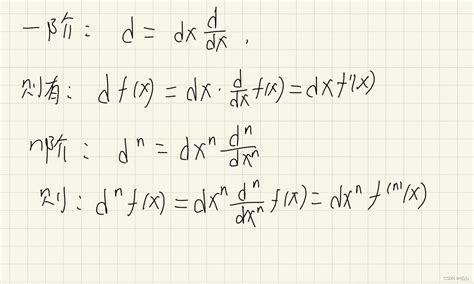 一阶: d = dx d/dx ,
则有: d f(x) = dx · d/dx f(x) = dx f'(x)
n阶: dⁿ = dxⁿ dⁿ/dxⁿ
则: dⁿ f(x) = dxⁿ dⁿ/dxⁿ f(x) = dxⁿ f⁽ⁿ⁾(x)